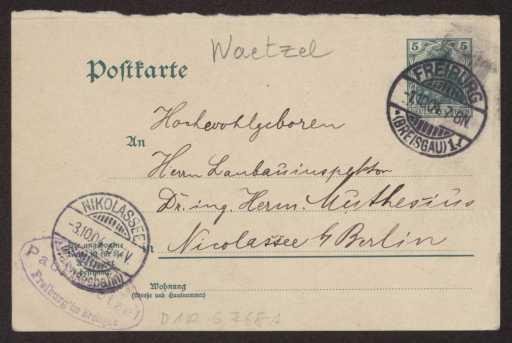 Waetzel
Postkarte
5 5
FREIBURG
1.10.04. 7-8N.
*(BREISGAU)1.*
Hochwohlgeboren
An
Herrn Landbauinspektor
Dr. ing. Herm. Muthesius
in
Nicolassee b/Berlin
NIKOLASSEE
-3.10.04
(Wannseebahn)
Freiburg im Breisgau
Wohnung
(Straße und Hausnummer)